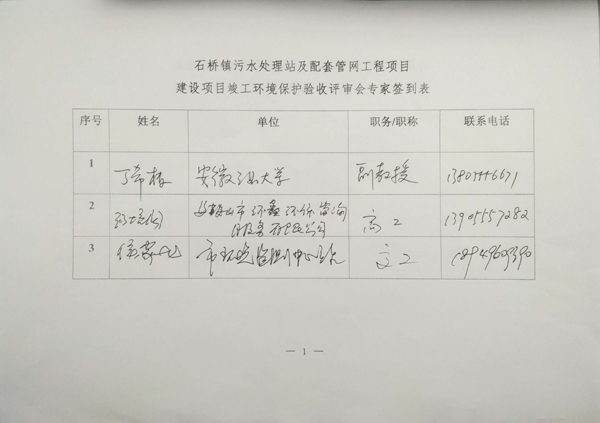 石桥镇污水处理站及配套管网工程项目
建设项目竣工环境保护验收评审会专家签到表
序号 姓名 单位 职务/职称 联系电话
1 丁希楠 安徽工业大学 副教授
2 马鞍山市环鑫环保咨询 高工 13905557282
服务有限公司
3 市环境监测中心站 高工
— 1 —